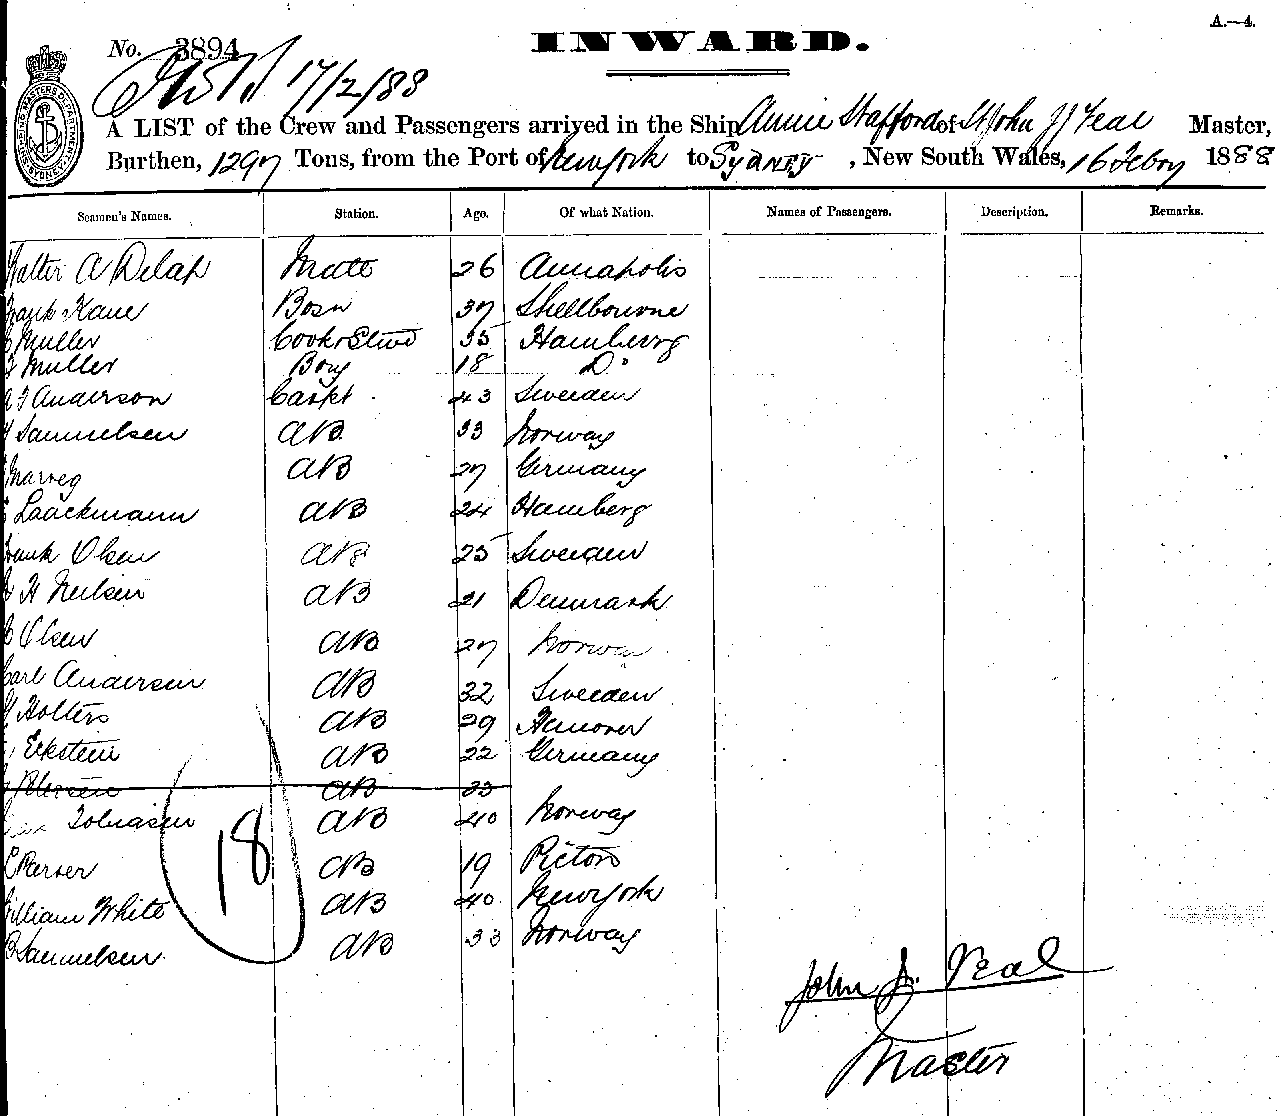 A.—4.
No. 3894
INWARD.
17/2/88
A LIST of the Crew and Passengers arrived in the Ship Annie Stafford of St John J J Veal Master,
Burthen, 1297 Tons, from the Port of New york to Sydney, New South Wales, 16 Febry 1888
Seamen's Names. Station. Age. Of what Nation. Names of Passengers. Description. Remarks.
Walter A Delap Mate 26 Annapolis
Frank Kane Bosn 37 Shellbourne
Muller Cook & Stwd 35 Hamberg
Muller Boy 18 Do
Anderson Carpt 43 Sweeden
Samuelsen AB 33 Norway
AB 27 Germany
Laackmann AB 24 Hamberg
Frank Olsen AB 25 Sweeden
H Neilsen AB 21 Denmark
C Olsen AB 27 Norway
Carl Andersen AB 32 Sweeden
Holters AB 29 Hanover
Eckstein AB 22 Germany
Petersen AB 23
Tobiasen AB 40 Norway
AB 19 Picton
William White AB 40 New york
Samuelsen AB 33 Norway
18
John J. Veal
Master